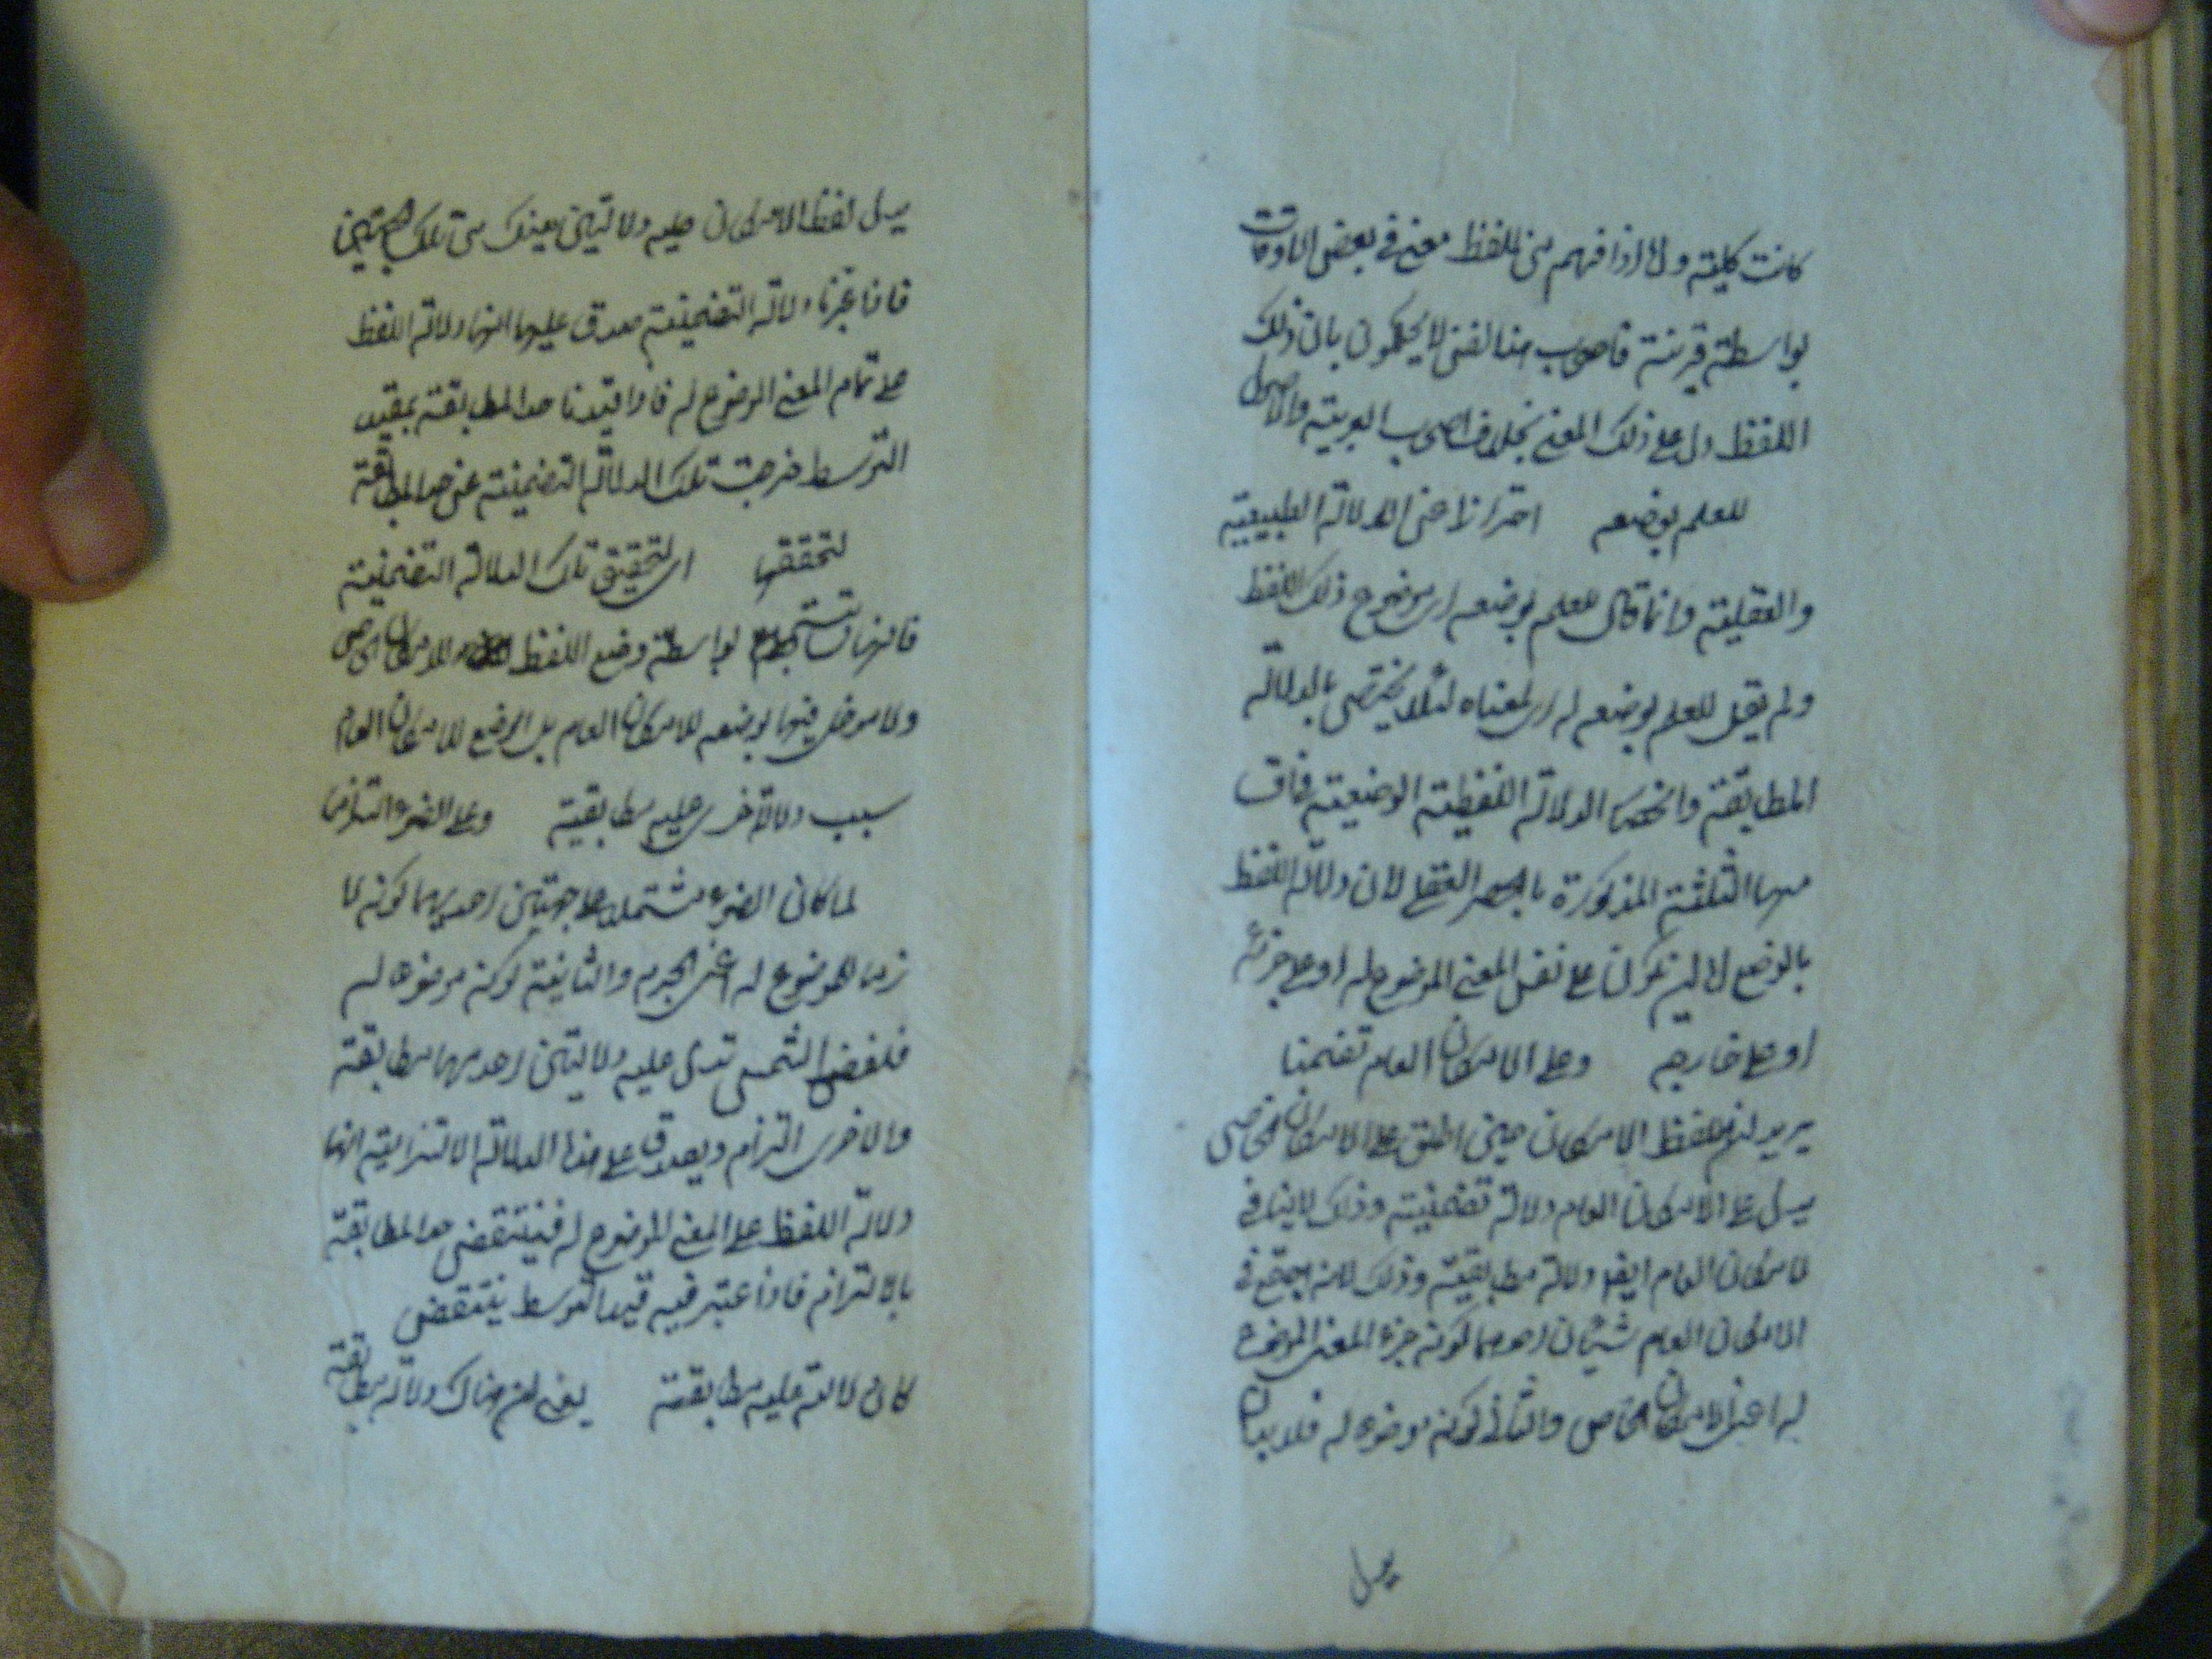 كانت كلية واما اذا فهم من اللفظ معنى في بعض الاوقات
بواسطة قرينة فاصحاب هذا الفن لا يحكمون بان ذلك
اللفظ دل على ذلك المعنى بخلاف اصحاب العربية والاصول
للعلم بوضعه احترازا عن الدلالة الطبيعية
والعقلية وانما قال للعلم بوضعه اى موضوع ذلك اللفظ
ولم يقل للعلم بوضعه له اى لمعناه لئلا يختص بالدلالة
المطابقة وانحصار الدلالة اللفظية الوضعية في اقسا
مها الثلثة المذكورة بالحصر العقلي لان دلالة اللفظ
بالوضع اما ان تكون على نفس المعنى الموضوع له او على جزئه
او على خارجه وعلى الامكان العام تضمنا
يريد ان لفظ الامكان حين اطلق على الامكان الخاص
يدل على الامكان العام دلالة تضمنية وذلك لا ينافي
لامكان العام ايضا دلالة مطابقية وذلك لانه اجتمع في
الامكان العام شيئان احدهما كونه جزء المعنى الموضوع
له اعنى الامكان الخاص والثاني كونه موضوعا له فلا
يدل
يدل لفظ الامكان عليه دلالتين من تلك الجهتين
فاذا دلالة التضمنية صدق عليها انها دلالة اللفظ
على تمام المعنى الموضوع له فاذا قيدنا حد المطابقة بقيد
التوسط خرجت تلك الدلالة التضمنية عن حد المطابقة
لتحققها اى لتحقيق تلك الدلالة التضمنية
فانها بواسطة وضع اللفظ للامكان الخاص
ولا مدخل فيها لوضعه للامكان العام بل الوضع للامكان العام
سبب دلالة اخرى عليه مطابقية وعلى الضوء التزاما
لما كان الضوء مشتملا على جهتين احديهما كونه لا
زما للموضوع له اعنى الجرم والثانية كونه موضوعا له
فلفظ الشمس تدل عليه دلالتين احدهما مطابقة
والاخرى التزام ويصدق على هذا الدلالة الالتزامية انها
دلالة اللفظ على المعنى الموضوع له فينتقض حد المطابقة
بالالتزام فاذا اعتبر فيه قيد التوسط ينتقض
كان دلالته عليه مطابقة يعنى ان هناك دلالة مطابقة